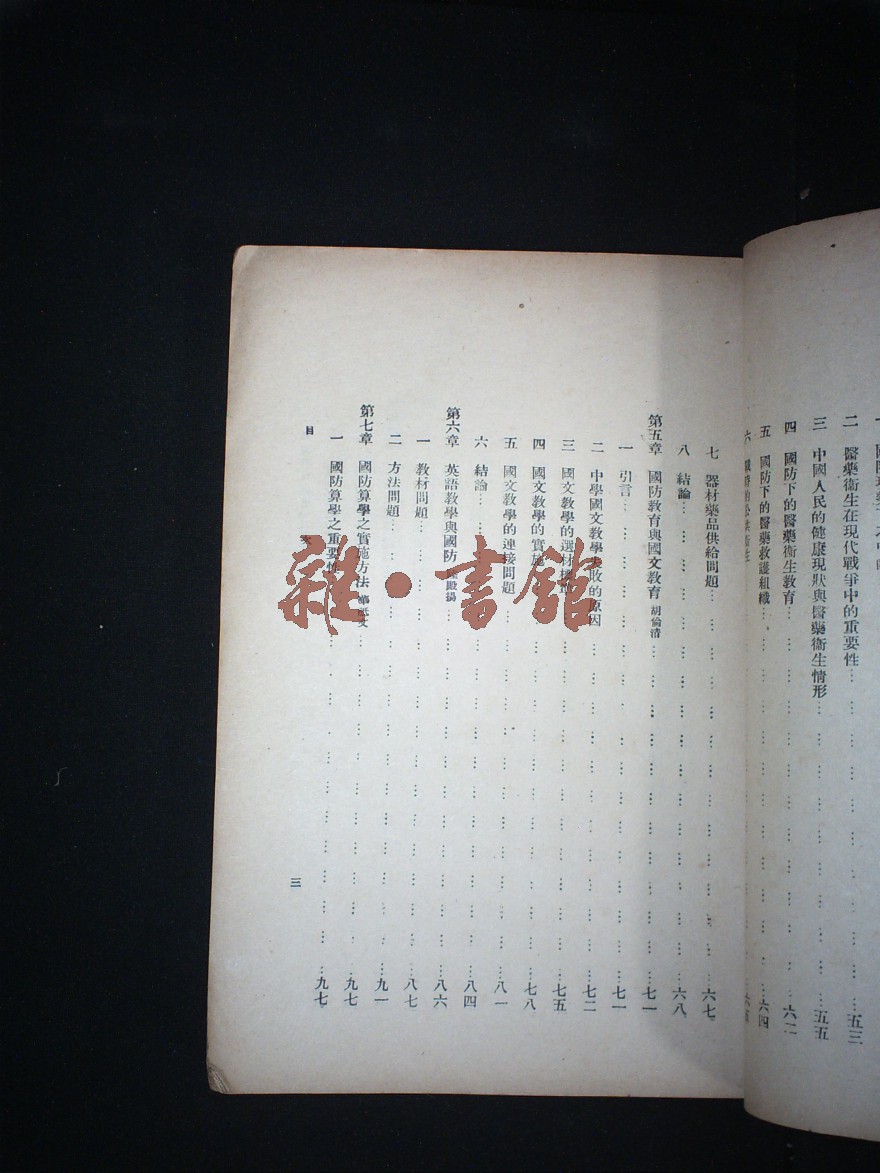 二　醫藥衞生在現代戰爭中的重要性…五三
三　中國人民的健康現狀與醫藥衞生情形…五五
四　國防下的醫藥衞生教育…六二
五　國防下的醫藥救護組織…六四
六　戰時的公共衞生
七　器材藥品供給問題…六七
八　結論…六八
第五章　國防教育與國文教育　胡倫清…七一
一　引言…七一
二　中學國文教學失敗的原因…七二
三　國文教學的選材標準…七五
四　國文教學的實施…七八
五　國文教學的連接問題…八一
六　結論…八四
第六章　英語教學與國防…八六
一　教材問題…八七
二　方法問題…九一
第七章　國防算學之實施方法…九七
一　國防算學之重要性…九七
目
三
雜・書館